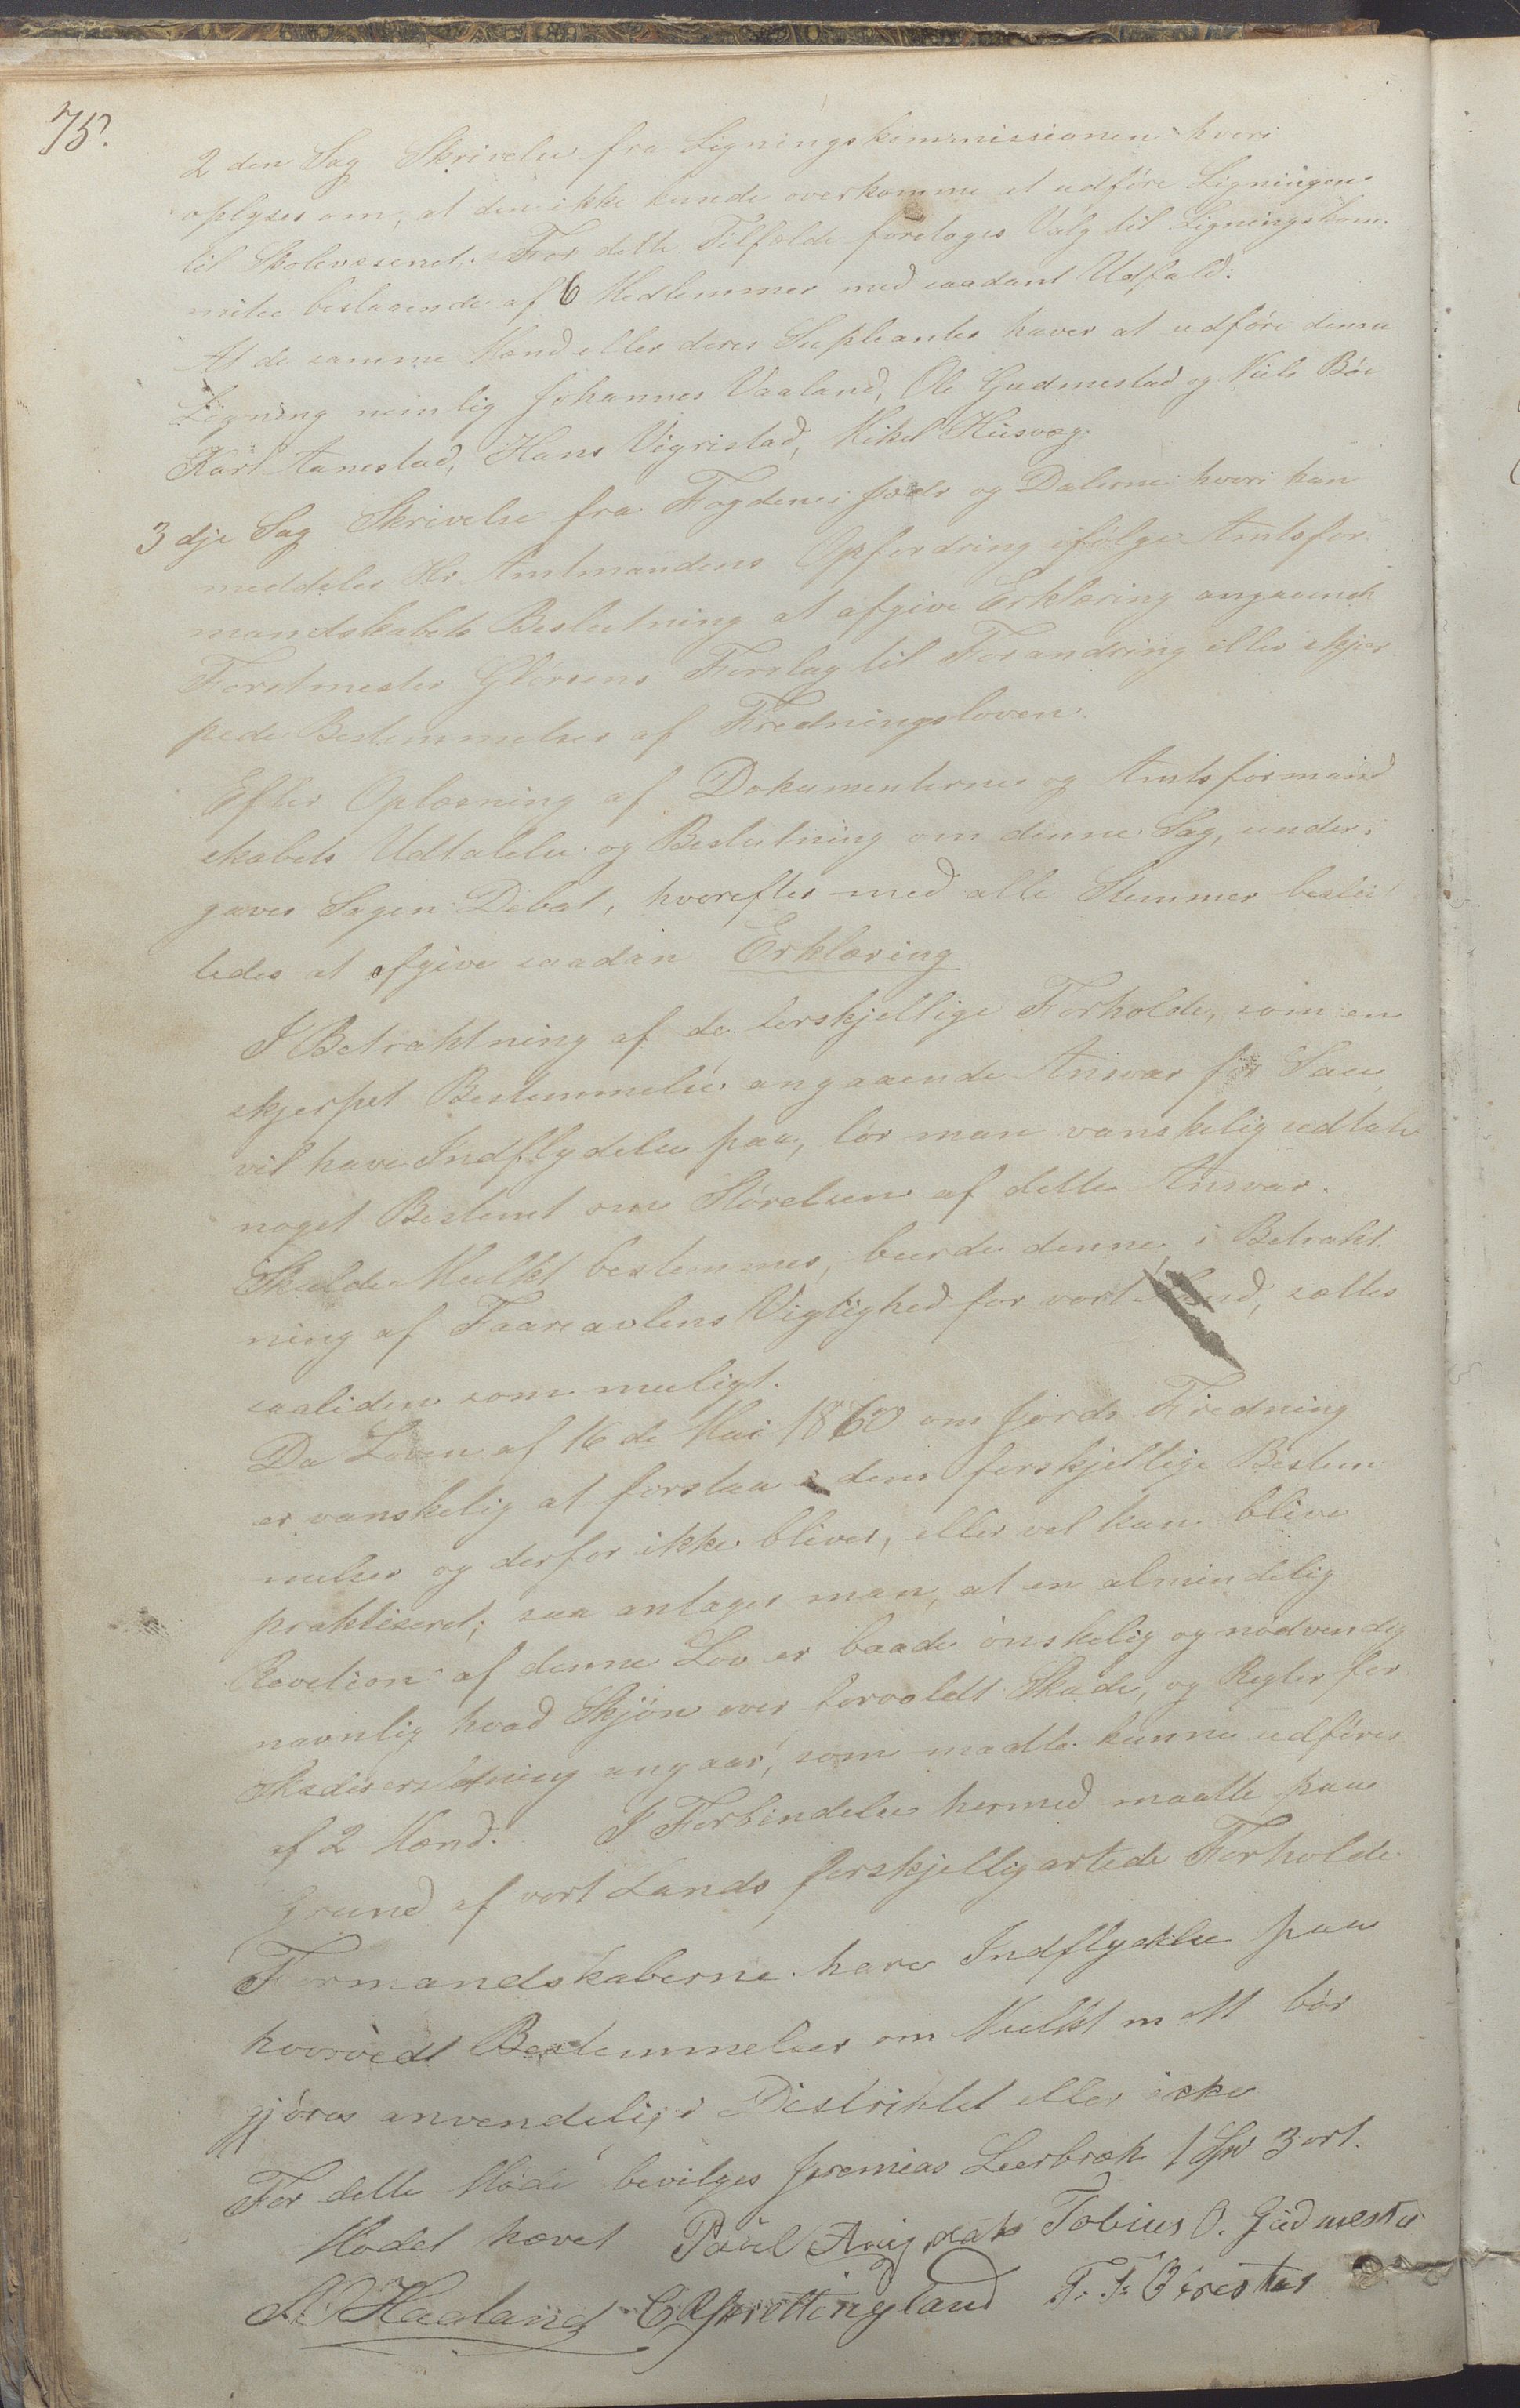 75.
2den Sag Skrivelse fra Ligningskommissionen hvori
oplyses om, at den ikke kunde overkomme at udføre Ligningen
til Skolevæsenet. For dette Tilfælde foretoges Valg til Ligningskom-
mitee bestaaende af 6 Medlemmer med saadant Udfald:
At de samme Mænd eller deres Supleanter haver at udføre denne
Ligning nemlig Johannes Vaaland, Ole Gudmestad og Niels Bøe
Karl Aanestad, Hans Vigrestad, Mikel Husvæg.
3dje Sag Skrivelse fra Fogden i Jæder og Dalerne hvori han
meddeler Hr Amtmandens Opfordring ifølge Amtsfor-
mandskabets Beslutning at afgive Erklæring angaaende
Forstmester Glørsens Forslag til Forandring eller skjær-
pede Bestemmelser af Fredningsloven.
Efter Oplæsning af Dokumenterne og Amtsformand-
skabets Udtalelse og Beslutning om denne Sag, under-
gaves Sagen Debat, hvorefter med alle Stemmer beslut-
tedes at afgive saadan Erklæring
I Betraktning af de forskjellige Forholde, som en
skjerpet Bestemmelse angaaende Ansvar for Sau
vil have Indflydelse paa, tør man vanskelig udtale
noget Bestemt om Størelsen af dette Ansvar.
Skulde Mulkt bestemmes, burde denne, i Betrakt-
ning af Faareavlens Vigtighed for vort Land, sættes
saaliden som muligt.
Da Loven af 16de Mai 1860 om Jords Fredning
er vanskelig at forstaa i dens forskjellige Bestem-
melser og derfor ikke bliver, eller vel kan blive
praktiseret; saa antager man, at en almindelig
Revetion af denne Lov er baade ønskelig og nødvendig
navnlig hvad Skjøn over forvoldt Skade, og Regler for
Skadeserstatning angaar, som maatte kunne udføres
af 2 Mænd. I Forbindelse hermed maatte paa
Grund af vort Lands forskjelligartede Forholde
Formandskaberne have Indflydelse paa
hvorvidt Bestemmelser om Mulkt m alt bør
gjøres anvendelig i Distriktet eller ikke
For dette Møde bevilges Jeremias Leerbræk 1 Spd 3 ort.
Mødet hævet Paul Tobias O. Gudmesta
Haaland Grettingland